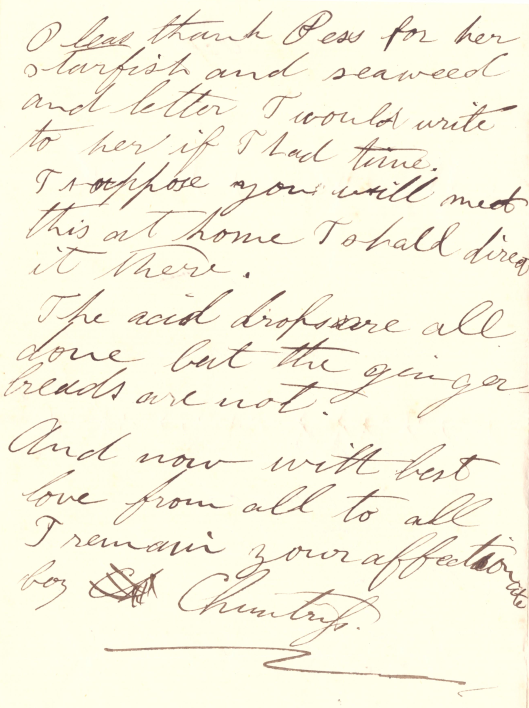 Pleas thank Pess for her
starfish and seaweed
and letter I would write
to her if I had time.
I suppose you will meet
this at home I shall direct
it there.
The acid drops are all
done but the ginger
breads are not.
And now with best
love from all to all
I remain your affectionate
boy